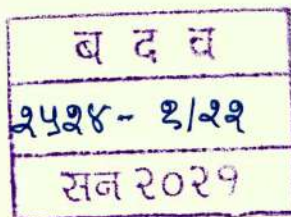 ब द व
२५२४- १/२२
सन २०२१